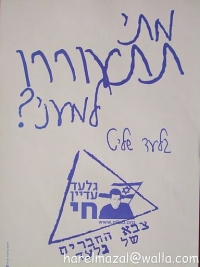 מתי
תתעוררו
למעני?
גלעד שליט
גלעד
עדיין
חי
צבא החברים
של
גלעד
© harelmazal@walla.com